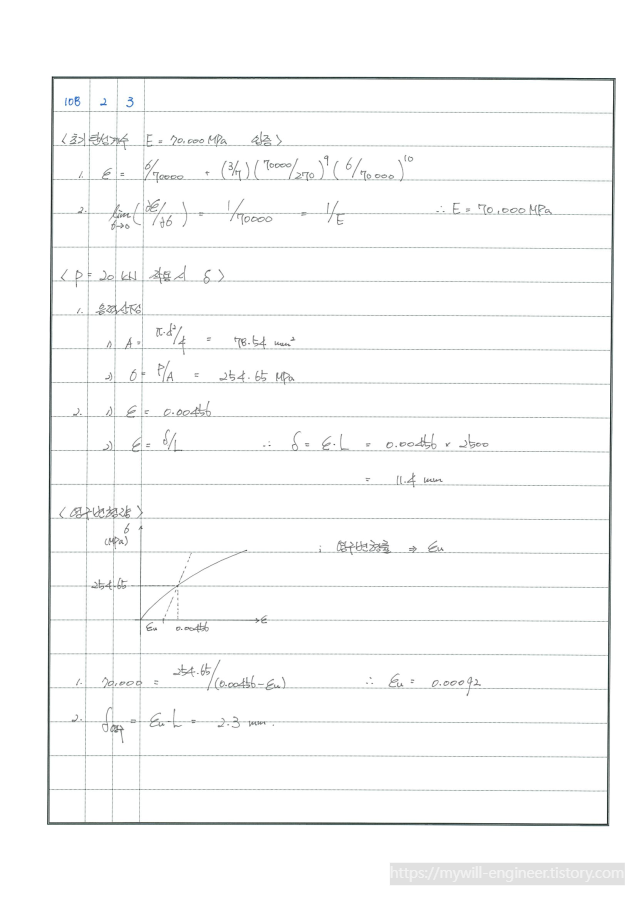 108 2 3
< 초기 탄성계수 E = 70,000 MPa 입증 >
1. ε = σ/70000 + (3/7)(70000/270)^9 (σ/70000)^10
2. lim σ→0 (∂ε/∂σ) = 1/70000 = 1/E ∴ E = 70,000 MPa
< P = 20 kN 작용시 δ >
1. 응력산정
1) A = π·d²/4 = 78.54 mm²
2) σ = P/A = 254.65 MPa
2. 1) ε = 0.00456
2) ε = δ/L ∴ δ = ε·L = 0.00456 × 2500
= 11.4 mm
< 영구변형량 >
σ
(MPa)
; 영구변형률 ⇒ εu
254.65
εu 0.00456 ε
1. 70,000 = 254.65/(0.00456-εu) ∴ εu = 0.00092
2. δ영구 = εu·L = 2.3 mm.
https://mywill-engineer.tistory.com